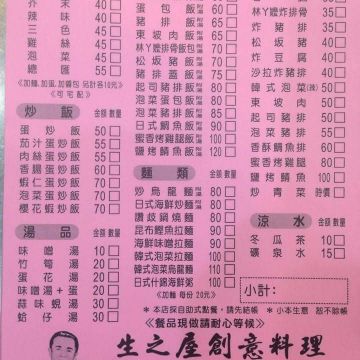 芥末 40
辣味 40
三色 45
雞絲 45
泡菜 45
總匯 55
《加麵,加蛋,加醬包 另計各10元》
《可宅配》
炒飯 金額 數量
蛋炒飯 50
茄汁蛋炒飯 55
肉絲蛋炒飯 55
香腸蛋炒飯 60
蝦仁蛋炒飯 70
泡菜蛋炒飯 70
櫻花蝦炒飯 70
湯品 金額 數量
味噌湯 15
竹筍湯 20
蛋花湯 20
味噌湯+蛋 20
蒜味蜆湯 30
蛤仔湯 30
蛋包飯 60
豬排飯 80
東坡肉飯 80
林ㄚ嬤排骨飯 80
松坂豬飯 80
豬排蓋飯 80
起司豬排飯 85
泡菜蛋包飯 80
起司蛋包飯 85
日式鯖魚飯 90
蜜香烤雞腿飯 100
鹽烤鯖魚飯 100
麵類 金額 數量
炒烏龍麵 80
日式海鮮炒麵 80
讚歧鍋燒麵 80
昆布鰹魚拉麵 80
海鮮味噌拉麵 80
韓式泡菜拉麵 80
韓式泡菜烏龍麵 80
日式什錦海鮮粥 80
《加麵 每份 20元》
林ㄚ嬤炸排骨
炸豬排
松坂豬
炸豆腐
沙拉炸豬排
韓式泡菜(辣)
東坡肉
起司豬排
泡菜豬排 55
香酥鯖魚排
蜜香烤雞腿
鹽烤鯖魚排
炒青菜 時價
涼水 金額 數量
冬瓜茶 10
礦泉水 15
小計:
＊本店採自助式點餐,請先結帳 ＊小本生意 恕不賒帳
《餐品現做請耐心等候》
生之屋創意料理